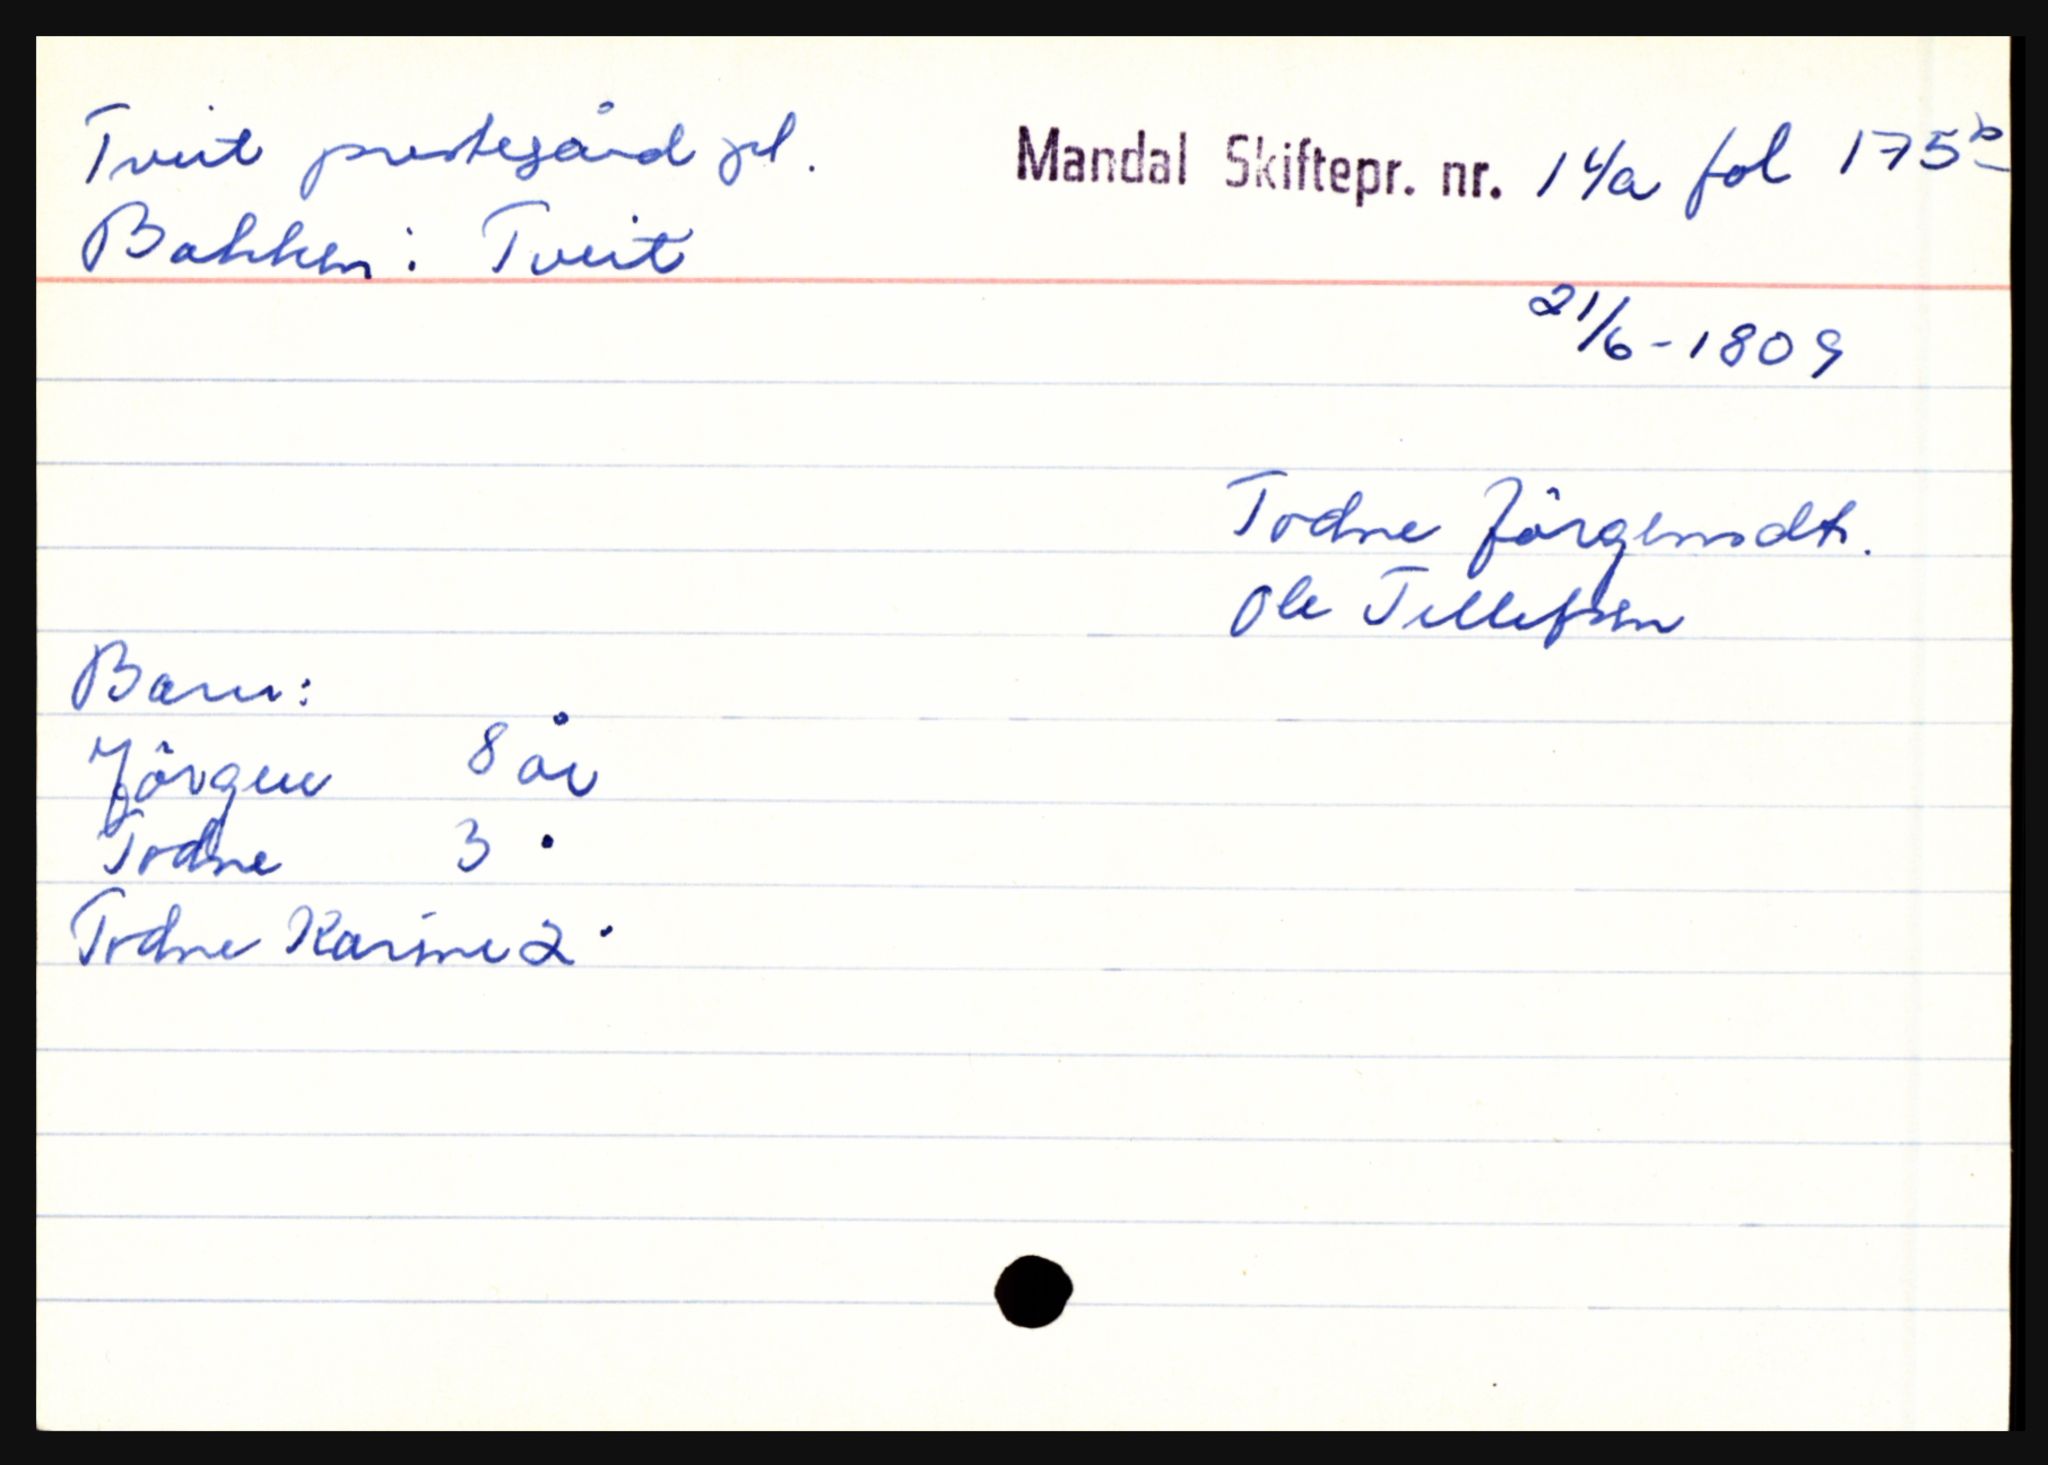 Tveit prestegård pl. Mandal Skiftepr. nr. 14a fol 175b
Bakken: Tveit
21/6-1809
Todne Jörgensdt.
Ole Tellefsen
Barn:
Jörgen 8 år
Todne 3 "
Todne Karine 2 "